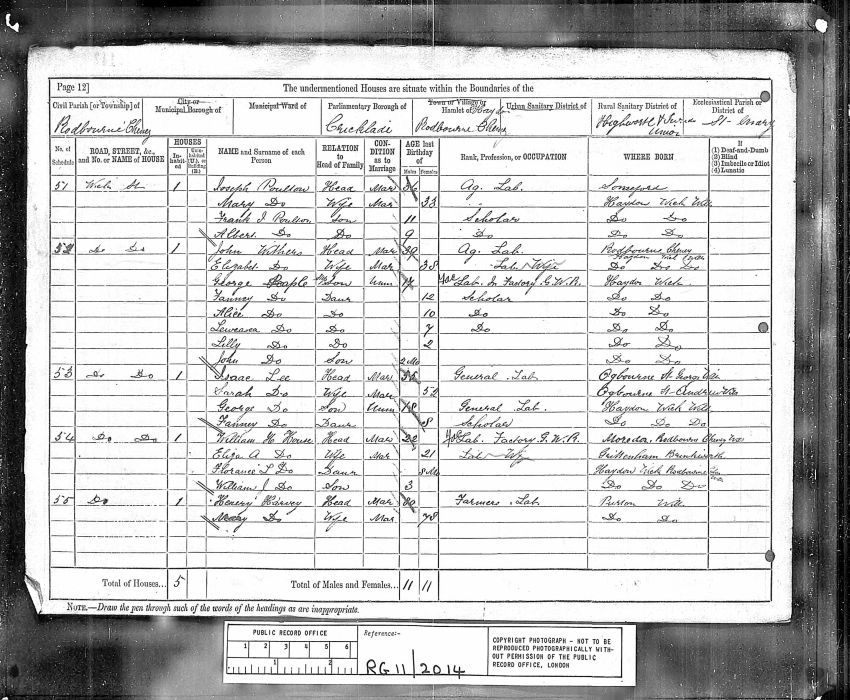 Page 12]
The undermentioned Houses are situate within the Boundaries of the
Civil Parish [or Township] of City or Municipal Borough of Municipal Ward of Parliamentary Borough of Town or Village or Hamlet of Urban Sanitary District of Rural Sanitary District of Ecclesiastical Parish or District of
Rodbourne Cheney Cricklade Haydon Rodbourne Cheney Highworth & Swindon Union St. Mary
No. of Schedule ROAD, STREET, &c., and No. or NAME of HOUSE HOUSES Inhabited Uninhabited (U.), or Building (B.) NAME and Surname of each Person RELATION to Head of Family CONDITION as to Marriage AGE last Birthday of Males Females Rank, Profession, or OCCUPATION WHERE BORN If (1) Deaf-and-Dumb (2) Blind (3) Imbecile or Idiot (4) Lunatic
51 Wich St 1 Joseph Poulton Head Mar 36 Ag. Lab.
Mary Do Wife Mar 33 Haydon Wich Wilts
Frank J Poulton Son 11 Scholar Do Do
Albert Do Do 9 Do Do Do
52 Do Do 1 John Withers Head Mar 39 Ag. Lab. Rodbourne Cheney
Elizabet Do Wife Mar 38 Lab Wife Haydon Wick Wilts Do Do Do
George Son Unm 17 Lab. In Factory G.W.R. Haydon Wich
Fanney Do Daur 12 Scholar Do Do
Alice Do Do 10 Do Do Do
Do Do 7 Do Do Do
Lilly Do Do 2 Do Do
John Do Son 2 Mo Do Do
53 Do Do 1 Isaac Lee Head Mar General Lab Ogbourne St. George Wilts
Sarah Do Wife Mar 52 Ogbourne St Andrew Wilts
George Do Son Unm 18 General Lab. Haydon Wich Wilts
Fanney Do Daur 8 Scholar Do Do Do
54 Do Do 1 William H House Head Mar 22 Lab. Factory G.W.R. Moredon, Rodbourne Cheney Wilts
Eliza A Do Wife Mar 21 Lab Wife
Florance L Do Daur 8 Mo Haydon Wich Rodbourne
William J Do Son 3 Do Do Do
55 Do 1 Henery Harvey Head Mar 80 Farmers Lab Purton Wilts
Do Wife Mar 78 Do Do
Total of Houses... 5 Total of Males and Females... 11 11
NOTE.—Draw the pen through such of the words of the headings as are inappropriate.
PUBLIC RECORD OFFICE
1 2 3 4 5 6
1 2
Reference:-
RG 11/2014
COPYRIGHT PHOTOGRAPH - NOT TO BE
REPRODUCED PHOTOGRAPHICALLY WITH-
OUT PERMISSION OF THE PUBLIC
RECORD OFFICE, LONDON